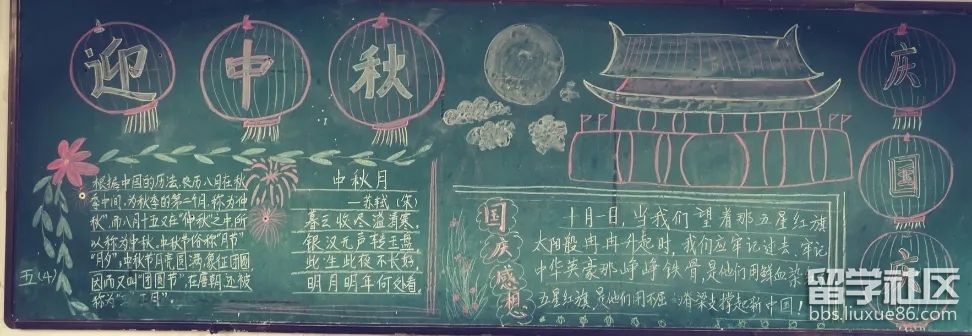 迎中秋
根据中国的历法,农历八月在秋
季中间,为秋季的第二个月,称为仲
秋",而八月十五又在"仲秋"之中,所
以称为中秋。中秋节俗称"月节"
"月夕",中秋节月亮圆满,象征团圆,
因而又叫"团圆节",在唐朝,还被
称为" 正月"。
五(4)
中秋月
—苏轼(宋)
暮云收尽溢清寒,
银汉无声转玉盘,
此生此夜不长好,
明月明年何处看。
国庆感想
十月一日,当我们望着那五星红旗
太阳般冉冉升起时,我们应牢记过去、牢记
中华英豪那铮铮铁骨,是他们用鲜血染
五星红旗,是他们用不屈 脊梁支撑起新中国!
庆国庆
留学社区
bbs.liuxue86.com